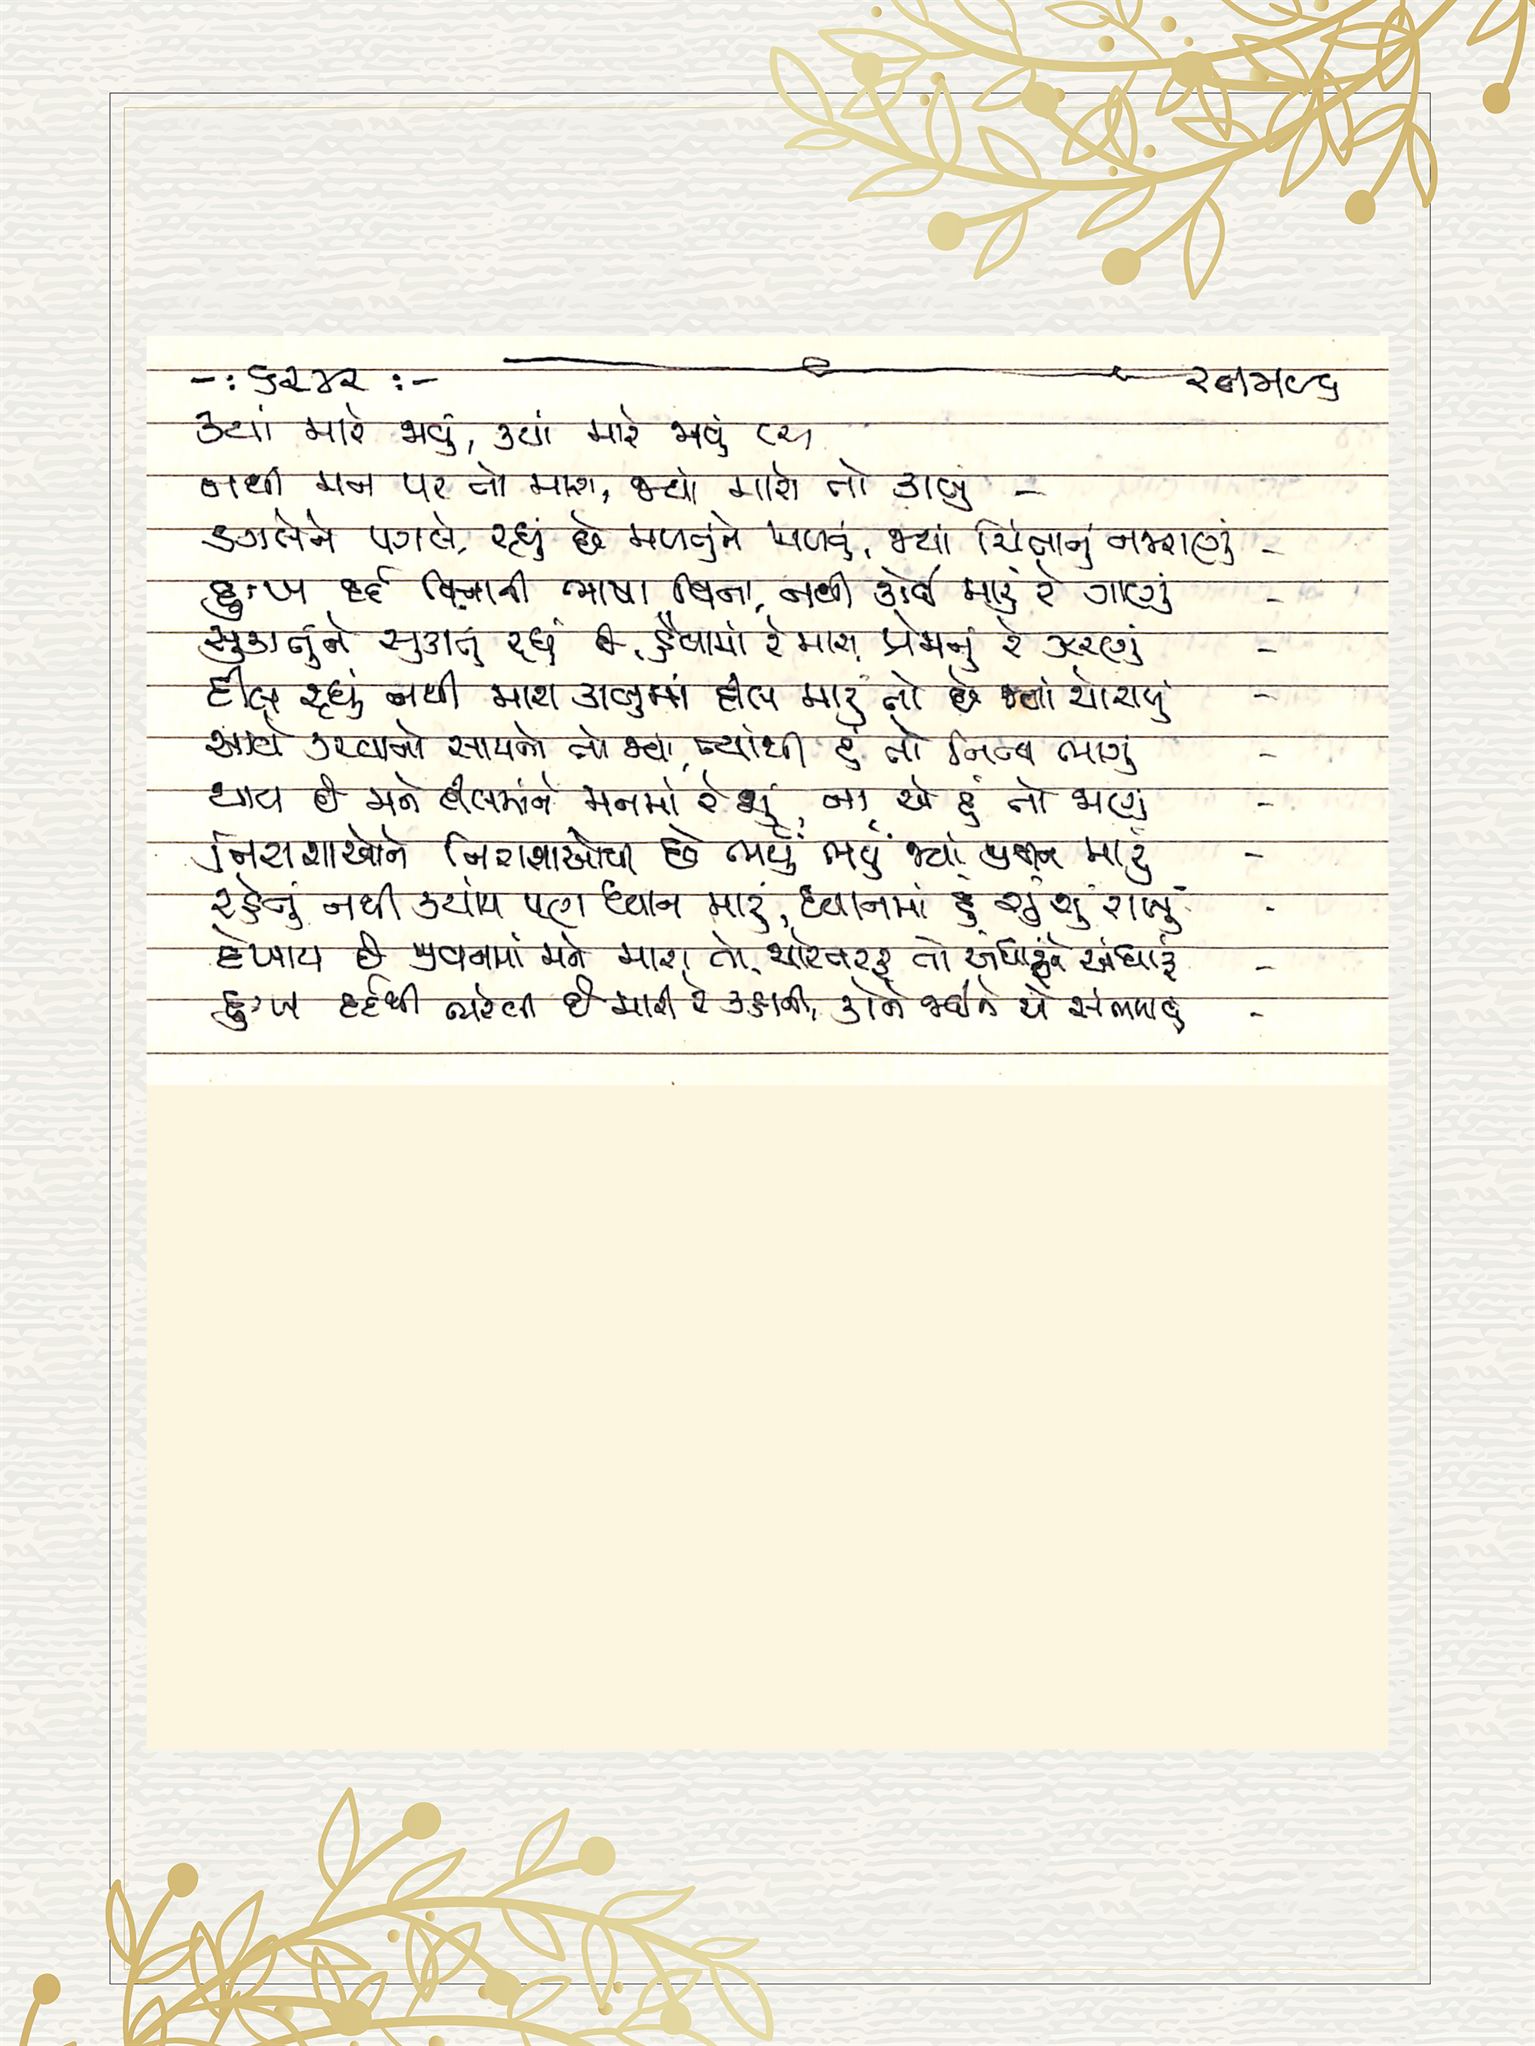 -: ૬૨૪૨ :-
ક્યાં મારે જાવું, ક્યાં મારે જાવું
નથી મન પર તો મારા, જ્યાં મારો તો કાબુ -
ડગલેને પગલે, રહ્યું છે મળતુંને મળતું, જ્યાં ચિંતાનું નજરાણું -
દુઃખ દર્દ વિનાની ભાષા વિના, નથી કોઈ મારું રે ગાણું -
સુકાતુંને સુકાતું રહ્યું છે, હૈયામાં રે મારા, પ્રેમનું રે ઝરણું -
દીલ રહ્યું નથી મારા કાબુમાં દીલ મારું તો છે જ્યાં ચોરાયું -
આવે કરવાનો સામનો તો જ્યાં, ત્યાંથી હું તો નિત્ય ભાગું -
થાય છે મને દીલમાંને મનમાં રે શું, ના એ હું તો જાણું -
નિરાશાઓને નિરાશાઓથી છે ભર્યું ભર્યું જ્યાં જીવન મારું -
રહેતું નથી ક્યાંય પણ ધ્યાન મારું, ધ્યાનમાં હું શું શું રાખું -
દેખાય છે જીવનમાં મને મારા તો, ચારેતરફ તો અંધારુંને અંધારું -
દુઃખ દર્દથી ભરેલી છે મારી રે કહાની, કોને જઈને એ સંભળાવું -